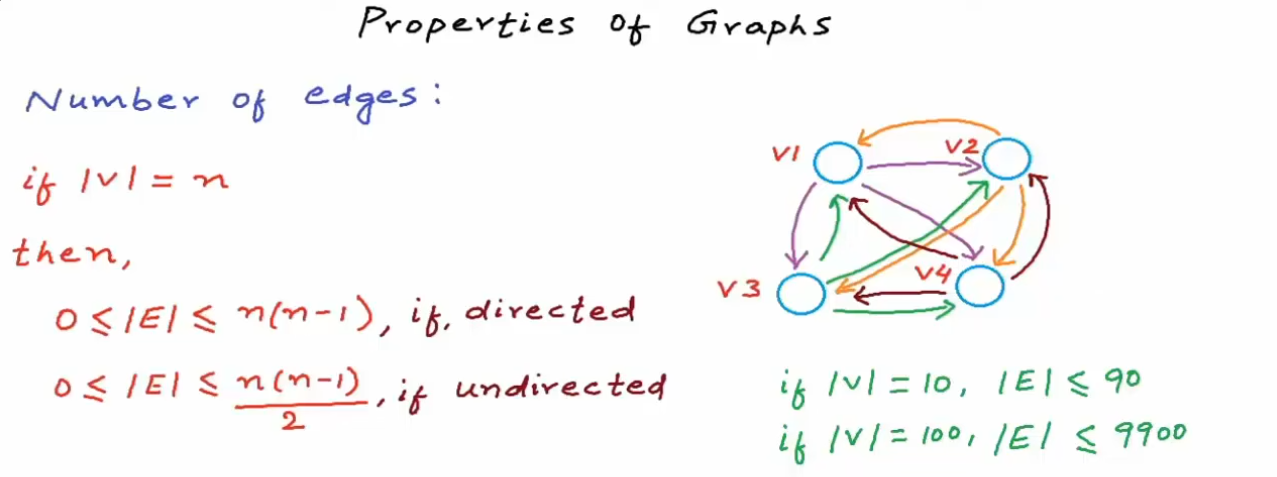 Properties of Graphs
Number of edges:
if |V| = n
then,
0 ≤ |E| ≤ n(n-1), if, directed
0 ≤ |E| ≤ n(n-1)/2, if undirected
V1
V2
V3
V4
if |V| = 10, |E| ≤ 90
if |V| = 100, |E| ≤ 9900